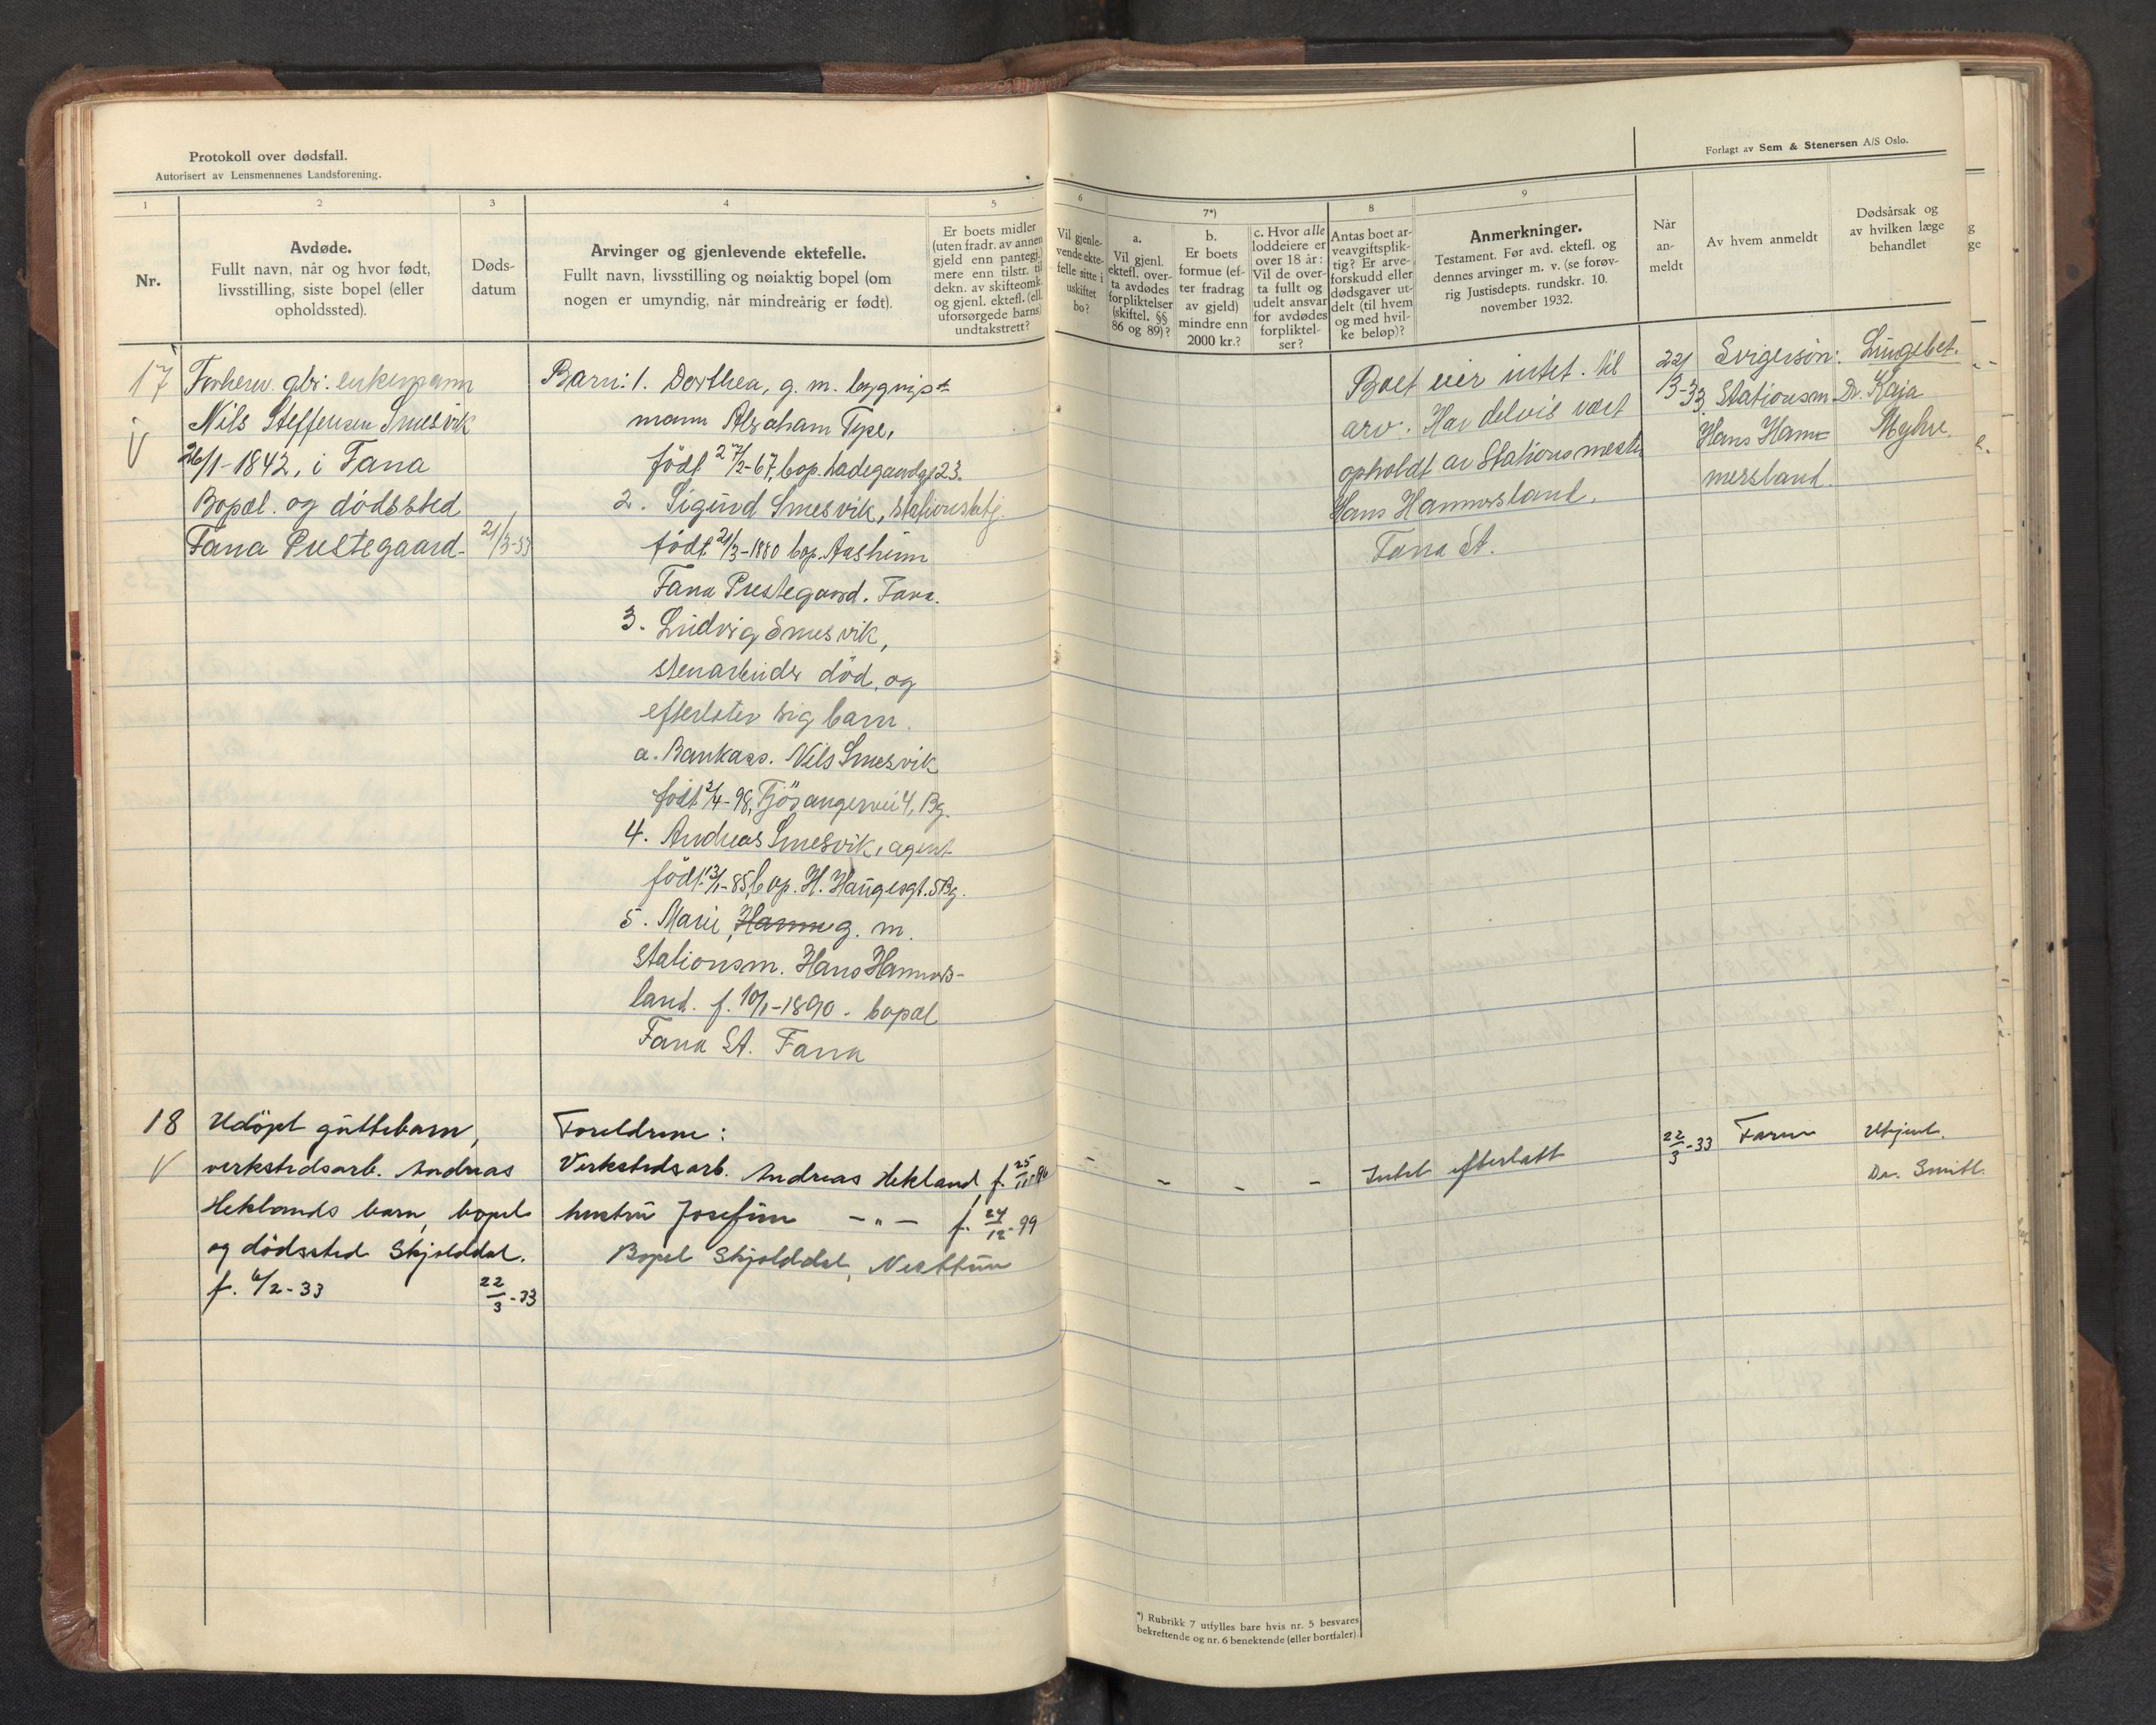 Protokoll over dødsfall.
Autorisert av Lensmennenes Landsforening.
1
2
3
4
5
Nr.
Avdøde.
Fullt navn, når og hvor født,
livsstilling, siste bopel (eller
opholdssted).
Døds-
datum
Arvinger og gjenlevende ektefelle.
Fullt navn, livsstilling og nøiaktig bopel (om
nogen er umyndig, når mindreårig er født).
Er boets midler
(uten fradr. av annen
gjeld enn pantegj.)
mere enn tilstr. til
dekn. av skifteomk.
og gjenl. ektefl. (ell.
uforsørgede barns)
undtakstrett?
17
V
Forhenv. gbr. enkemann
Nils Steffensen Smesvik
26/1-1842, i Fana
Bopæl. og dödssted
Fana Prestegaard.
21/3-33
Barn: 1. Dorthea, g. m. bygnings-
mann Abraham Type,
født 27/2-67, bop. Ladegaardsgt 23.
2. Sigurd Smesvik, stationsbetj.
født 21/3-1880 bop. Aasheim
Fana Prestegaard. Fana.
3. Ludvig Smesvik,
stenarbeider död, og
efterlater sig barn.
a. Bankass. Nils Smesvik
født 2/4-98, Fjösangervei 4, Bg.
4. Andreas Smesvik, agent
født 13/1-85, bop. H. Haugesgt. 5 Bg.
5. Marie, Hamm g. m.
Stationsm. Hans Hammers-
land. f. 10/1-1890 - bopæl
Fana St. Fana
18
V
Udöpt guttebarn,
verkstedsarb. Andreas
Heklands barn, bopel
og dödssted Skjolddal.
f. 6/2-33
22/3-33
Foreldrene:
Verkstedsarb. Andreas Hekland, f. 25/11-96
hustru Josefine -"- f. 24/12-99
Bopel Skjolddal, Nesttun
Forlagt av Sem & Stenersen A/S Oslo.
6
7*)
8
9
Vil gjenle-
vende ekte-
felle sitte i
uskiftet
bo?
a.
Vil gjenl.
ektefl. over-
ta avdødes
forpliktelser
(skiftel. §§
86 og 89)?
b.
Er boets
formue (ef-
ter fradrag
av gjeld)
mindre enn
2000 kr.?
c. Hvor alle
loddeiere er
over 18 år:
Vil de over-
ta fullt og
udelt ansvar
for avdødes
forpliktel-
ser?
Antas boet ar-
veavgiftsplik-
tig? Er arve-
forskudd eller
dødsgaver ut-
delt (til hvem
og med hvil-
ke beløp)?
Anmerkninger.
Testament. Før avd. ektefl. og
dennes arvinger m. v. (se forøv-
rig Justisdepts. rundskr. 10.
november 1932.
Når
an-
meldt
Av hvem anmeldt
Dødsårsak og
av hvilken læge
behandlet
Boet eier intet. til
arv. Har delvis vært
opholdt av Stationsmester
Hans Hammersland.
Fana St.
22/3-33
Svigersön:
Stationsm
Hans Ham-
mersland.
Lungebet.
Dr. Kaja
Myhre.
- - - -
Intet efterlatt
22/3-33
Faren
Ukjent.
Dr. Smitt.
*) Rubrikk 7 utfylles bare hvis nr. 5 besvares
bekreftende og nr. 6 benektende (eller bortfaler)